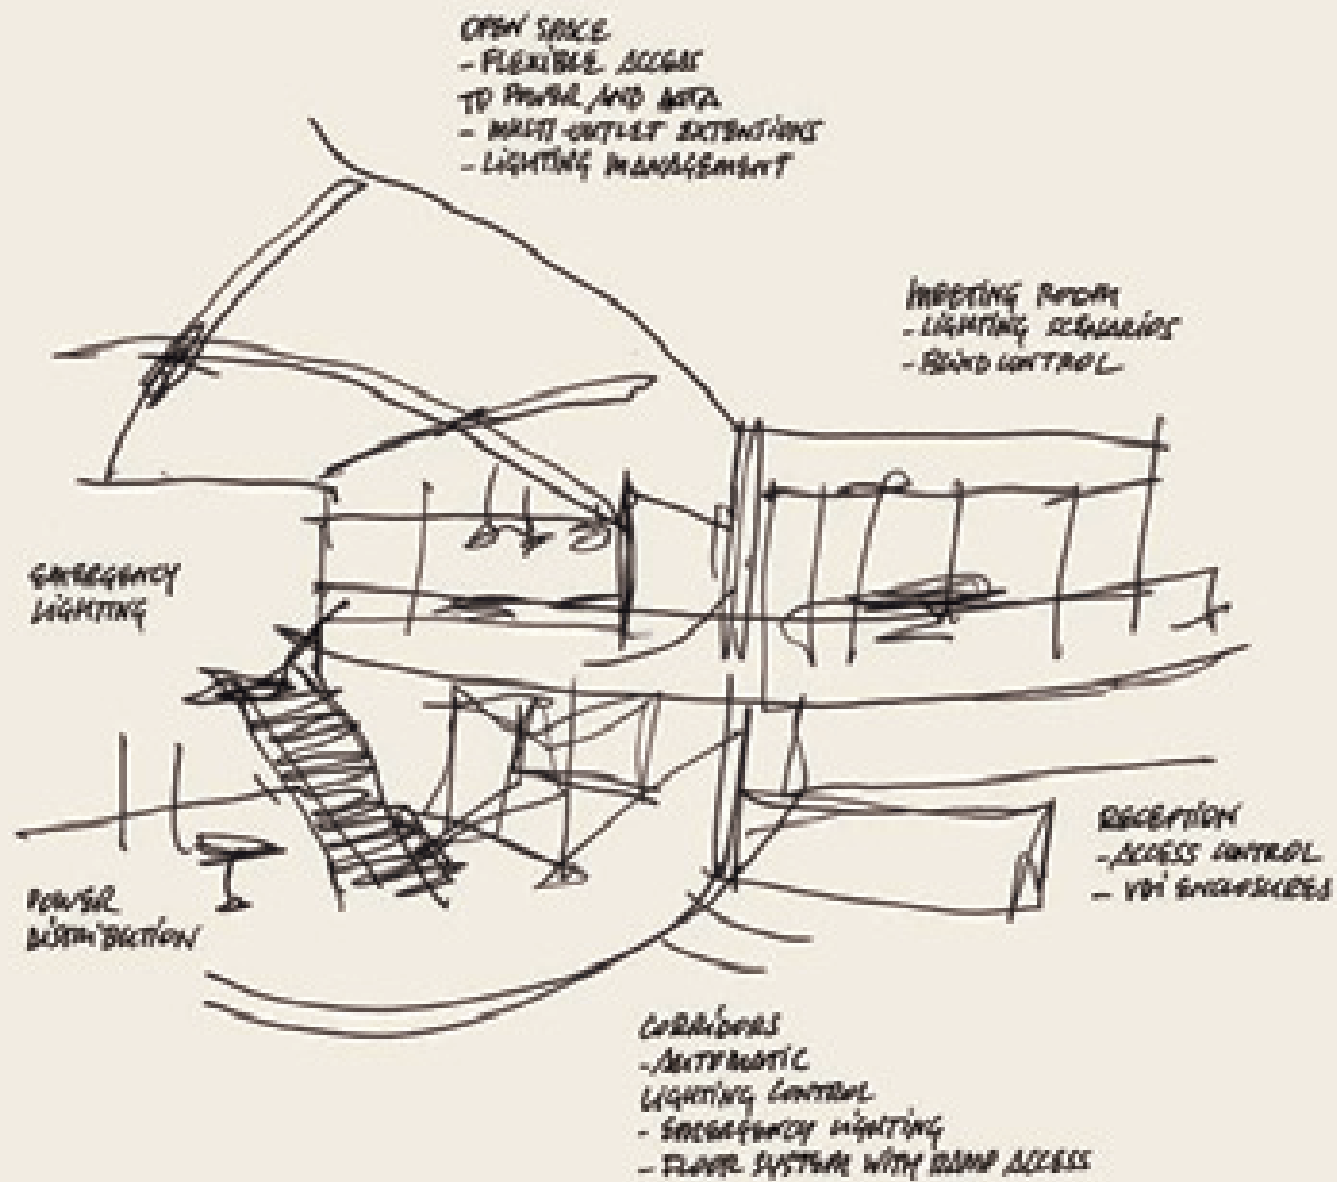 OPEN SPACE
- FLEXIBLE ACCESS
TO POWER AND DATA
- MULTI-OUTLET EXTENTIONS
- LIGHTING MANAGEMENT
MEETING ROOM
- LIGHTING SCENARIOS
- BLIND CONTROL
EMERGENCY
LIGHTING
POWER
DISTRIBUTION
RECEPTION
- ACCESS CONTROL
- VDI ENCLOSURES
CORRIDORS
- AUTOMATIC
LIGHTING CONTROL
- EMERGENCY LIGHTING
- FLOOR SYSTEM WITH DAMP ACCESS